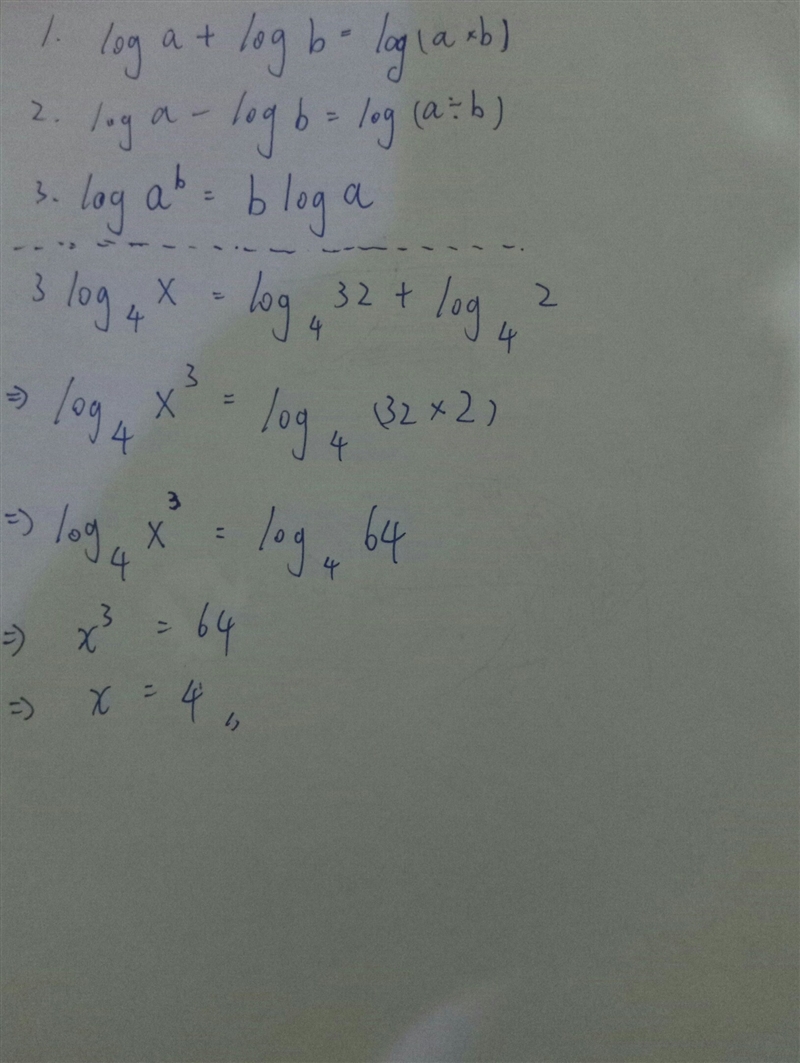 1. log a + log b = log(a × b)
2. log a - log b = log(a ÷ b)
3. log aᵇ = b log a
3 log₄ x = log₄ 32 + log₄ 2
⇒ log₄ x³ = log₄ (32 × 2)
⇒ log₄ x³ = log₄ 64
⇒ x³ = 64
⇒ x = 4 〃